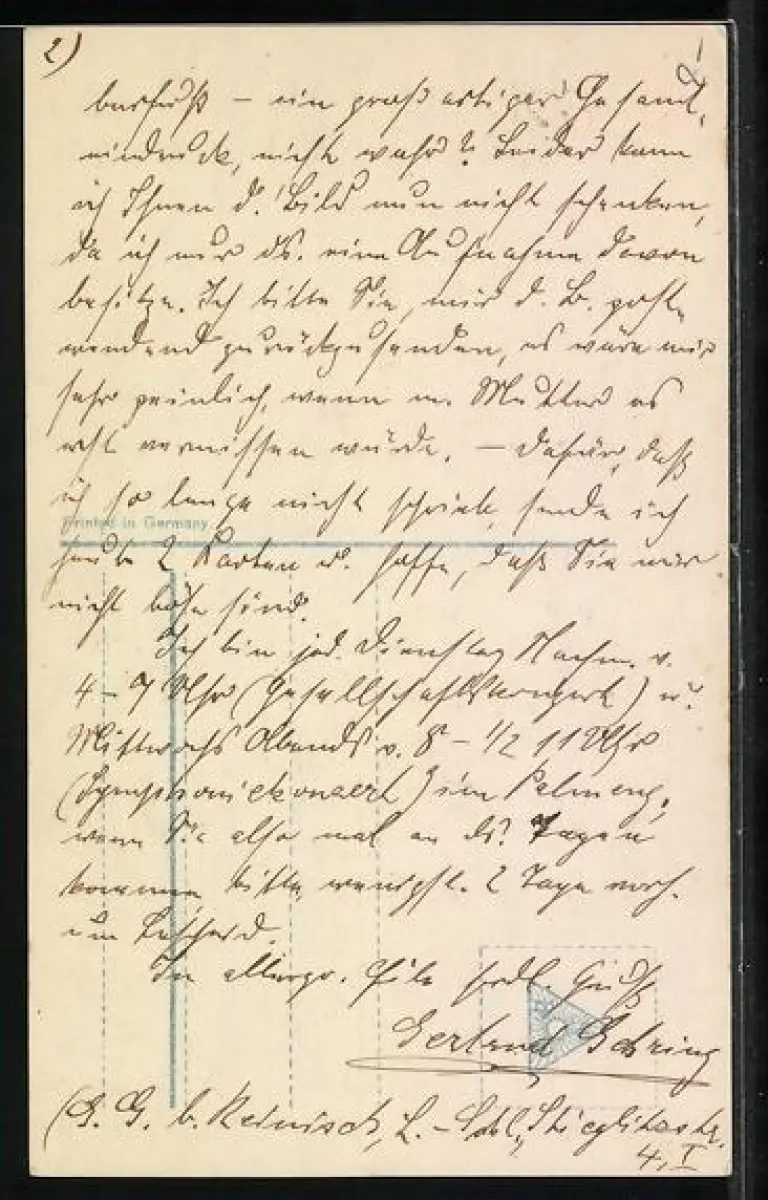 2)
barfuß – ein großartiger Gesamt-
eindruck, nicht wahr? Leider kann
ich Ihnen d. Bild nun nicht schenken,
da ich nur ds. eine Aufnahme davon
besitze. Ich bitte Sie, mir d. B. post-
wendend zurückzusenden, es wäre mir
sehr peinlich, wenn m. Mutter es
erst vermissen würde. – Dafür, daß
ich so lange nicht schrieb, sende ich
Printed in Germany
heute 2 Karten u. hoffe, daß Sie mir
nicht böse sind.
Ich bin jed. Dienstag Nachm. v.
4–7 Uhr (Gesellschaftskonzert) u.
Mittwochs Abends v. 8–1/2 11 Uhr
(Symphoniekonzert) im Palmeng.,
wenn Sie also mal an ds. Tagen
kommen, bitte, wenigst. 2 Tage vorh.
um Bescheid.
In allergr. Eile frdl. Gruß
Gertrud Gehring
(G. G. b. Reinisch, L.-Schl., Stieglitzstr.
4, I